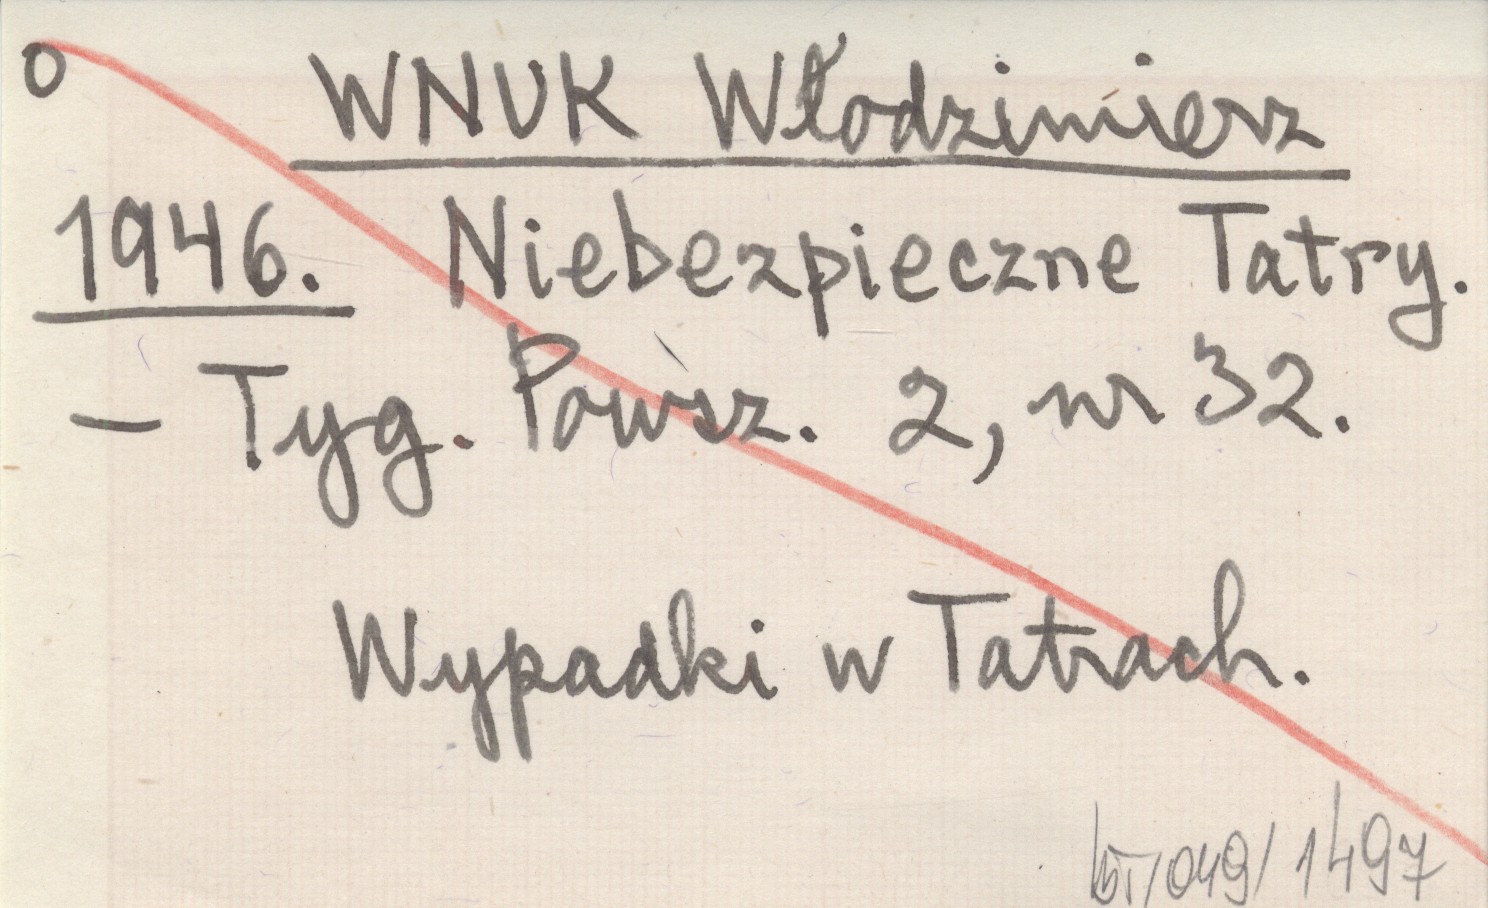 o WNUK Włodzimierz
1946. Niebezpieczne Tatry.
- Tyg. Powsz. 2, nr 32.
Wypadki w Tatrach.
/049/1497